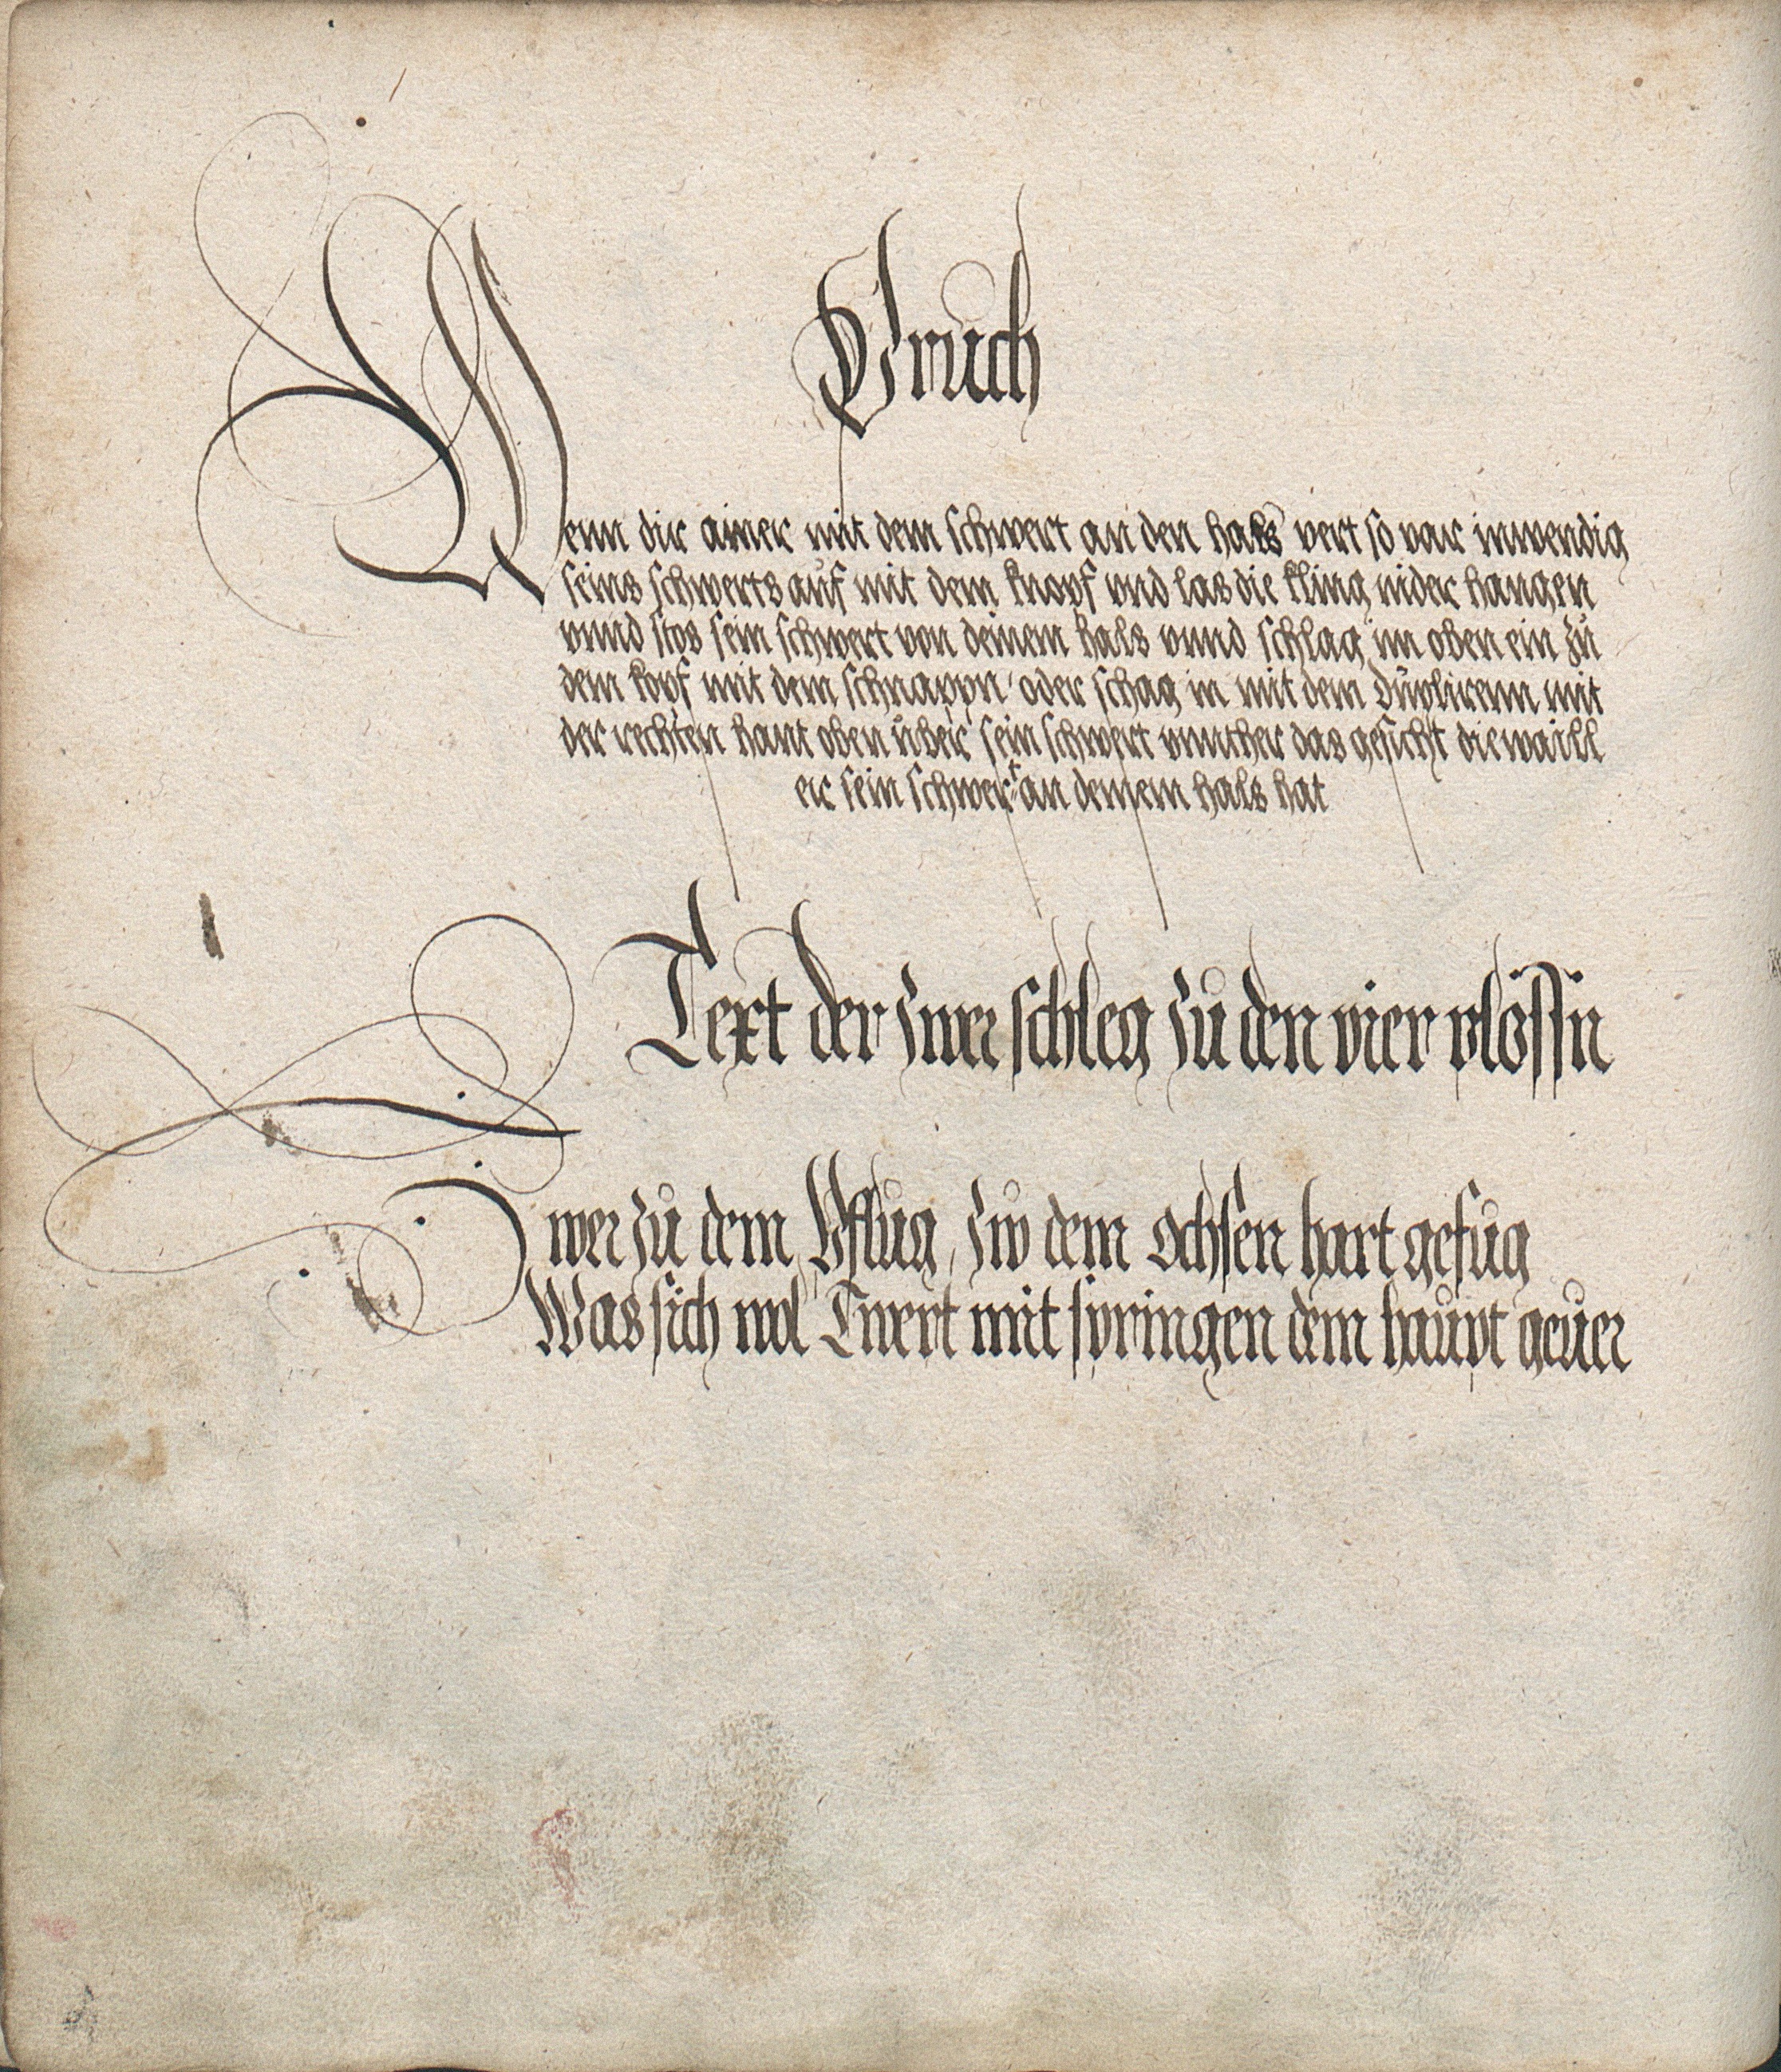 Bruch
Wenn dir ainer mit dem schwert an den hals vert so var inwendig
seins schwerts auf mit dem knopf vnd las die kling nider hangen
vnnd stos sein schwert von deinem hals vnnd schlag im oben ein zu
dem kopf mit dem schnappn oder schag in mit dem duplirenn mit
der rechten hant oben über sein schwert vnnther das gesicht die waill
er sein schwert an deinem hals hat
Text der zwer schleg zu den vier plössn
Zwer zu dem Pflug, zw dem ochsen hart gefug
Was sich wol Twert mit springen dem haupt geuer